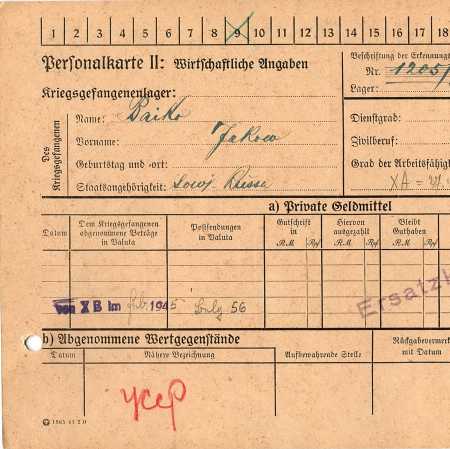 1 2 3 4 5 6 7 8 9 10 11 12 13 14 15 16 17 18
Personalkarte II: Wirtschaftliche Angaben
Beschriftung der Erkennungs
Nr. 1205/
Kriegsgefangenenlager:
Lager:
Des Kriegsgefangenen
Name: Baiko
Vorname: Jakow
Geburtstag und -ort:
Staatsangehörigkeit: Sowj. Russe
Dienstgrad:
Zivilberuf:
Grad der Arbeitsfähig
XA = 27.
a) Private Geldmittel
Datum
Dem Kriegsgefangenen abgenommene Beträge in Valuta
Postsendungen in Valuta
Gutschrift in
RM Rpf
Hiervon ausgezahlt
RM Rpf
Bleibt Guthaben
RM Rpf
von X B im Feb. 1945 56
Ersatzk
b) Abgenommene Wertgegenstände
Datum
Nähere Bezeichnung
Aufbewahrende Stelle
Rückgabevermerk mit Datum
1865 41 2 D